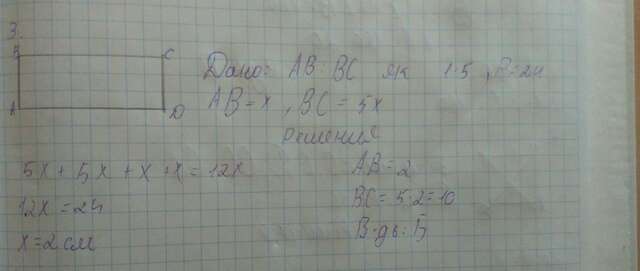 3.
B C
A D
Дано: AB : BC як 1:5, P=24
AB = x, BC = 5x
Решение
5x + 5x + x + x = 12x
12x = 24
x = 2 см
AB = 2
BC = 5·2 = 10
В-дь: Б